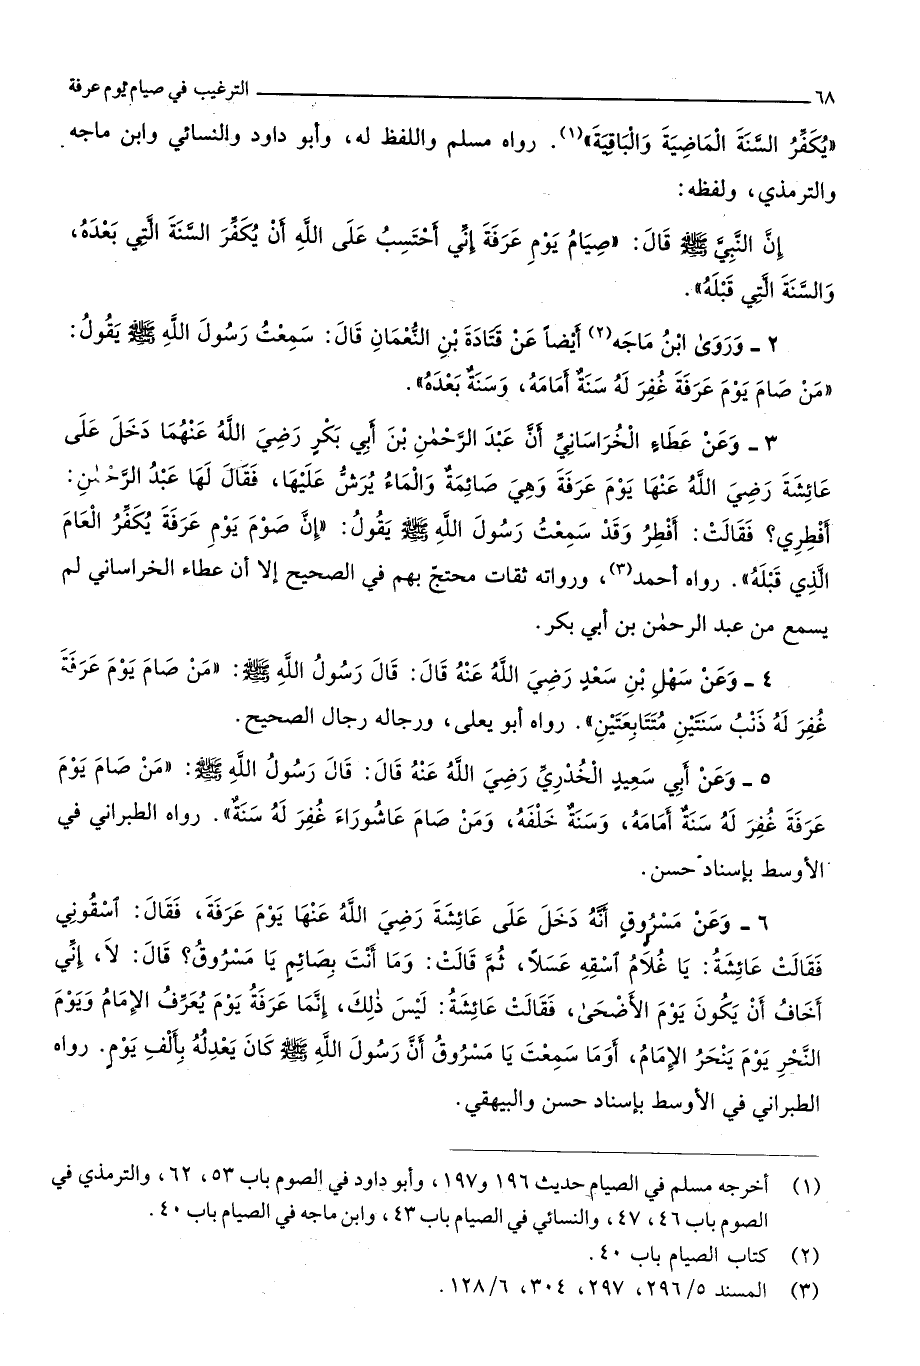 ٦٨ ــــــــــ الترغيب في صيام يوم عرفة
«يُكَفِّرُ السَّنَةَ الْمَاضِيَةَ وَالْبَاقِيَةَ»(١). رواه مسلم واللفظ له، وأبو داود والنسائي وابن ماجه
والترمذي، ولفظه:
إِنَّ النَّبِيَّ ﷺ قَالَ: «صِيَامُ يَوْمِ عَرَفَةَ إِنِّي أَحْتَسِبُ عَلَى اللَّهِ أَنْ يُكَفِّرَ السَّنَةَ الَّتِي بَعْدَهُ،
وَالسَّنَةَ الَّتِي قَبْلَهُ».
٢ ـ وَرَوَىٰ ابْنُ مَاجَه(٢) أَيْضاً عَنْ قَتَادَةَ بْنِ النُّعْمَانِ قَالَ: سَمِعْتُ رَسُولَ اللَّهِ ﷺ يَقُولُ:
«مَنْ صَامَ يَوْمَ عَرَفَةَ غُفِرَ لَهُ سَنَةٌ أَمَامَهُ، وَسَنَةٌ بَعْدَهُ».
٣ ـ وَعَنْ عَطَاءِ الْخُرَاسَانِيِّ أَنَّ عَبْدَ الرَّحْمٰنِ بْنَ أَبِي بَكْرٍ رَضِيَ اللَّهُ عَنْهُمَا دَخَلَ عَلَى
عَائِشَةَ رَضِيَ اللَّهُ عَنْهَا يَوْمَ عَرَفَةَ وَهِيَ صَائِمَةٌ وَالْمَاءُ يُرَشُّ عَلَيْهَا، فَقَالَ لَهَا عَبْدُ الرَّحْمٰنِ:
أَفْطِرِي؟ فَقَالَتْ: أُفْطِرُ وَقَدْ سَمِعْتُ رَسُولَ اللَّهِ ﷺ يَقُولُ: «إِنَّ صَوْمَ يَوْمِ عَرَفَةَ يُكَفِّرُ الْعَامَ
الَّذِي قَبْلَهُ». رواه أحمد(٣)، ورواته ثقات محتجّ بهم في الصحيح إلا أن عطاء الخراساني لم
يسمع من عبد الرحمٰن بن أبي بكر.
٤ ـ وَعَنْ سَهْلِ بْنِ سَعْدٍ رَضِيَ اللَّهُ عَنْهُ قَالَ: قَالَ رَسُولُ اللَّهِ ﷺ: «مَنْ صَامَ يَوْمَ عَرَفَةَ
غُفِرَ لَهُ ذَنْبُ سَنَتَيْنِ مُتَتَابِعَتَيْنِ». رواه أبو يعلى، ورجاله رجال الصحيح.
٥ ـ وَعَنْ أَبِي سَعِيدٍ الْخُدْرِيِّ رَضِيَ اللَّهُ عَنْهُ قَالَ: قَالَ رَسُولُ اللَّهِ ﷺ: «مَنْ صَامَ يَوْمَ
عَرَفَةَ غُفِرَ لَهُ سَنَةٌ أَمَامَهُ، وَسَنَةٌ خَلْفَهُ، وَمَنْ صَامَ عَاشُورَاءَ غُفِرَ لَهُ سَنَةٌ». رواه الطبراني في
الأوسط بإسناد حسن.
٦ ـ وَعَنْ مَسْرُوقٍ أَنَّهُ دَخَلَ عَلَى عَائِشَةَ رَضِيَ اللَّهُ عَنْهَا يَوْمَ عَرَفَةَ، فَقَالَ: ٱسْقُونِي
فَقَالَتْ عَائِشَةُ: يَا غُلَامُ ٱسْقِهِ عَسَلاً، ثُمَّ قَالَتْ: وَمَا أَنْتَ بِصَائِمٍ يَا مَسْرُوقُ؟ قَالَ: لاَ، إِنِّي
أَخَافُ أَنْ يَكُونَ يَوْمَ الأَضْحَىٰ، فَقَالَتْ عَائِشَةُ: لَيْسَ ذٰلِكَ، إِنَّمَا عَرَفَةُ يَوْمَ يُعَرِّفُ الإِمَامُ وَيَوْمَ
النَّحْرِ يَوْمَ يَنْحَرُ الإِمَامُ، أَوَمَا سَمِعْتَ يَا مَسْرُوقُ أَنَّ رَسُولَ اللَّهِ ﷺ كَانَ يَعْدِلُهُ بِأَلْفِ يَوْمٍ. رواه
الطبراني في الأوسط بإسناد حسن والبيهقي.
(١) أخرجه مسلم في الصيام حديث ١٩٦ و١٩٧، وأبو داود في الصوم باب ٥٣، ٦٢، والترمذي في
الصوم باب ٤٦، ٤٧، والنسائي في الصيام باب ٤٣، وابن ماجه في الصيام باب ٤٠.
(٢) كتاب الصيام باب ٤٠.
(٣) المسند ٥/ ٢٩٦، ٢٩٧، ٣٠٤، ٦/ ١٢٨.